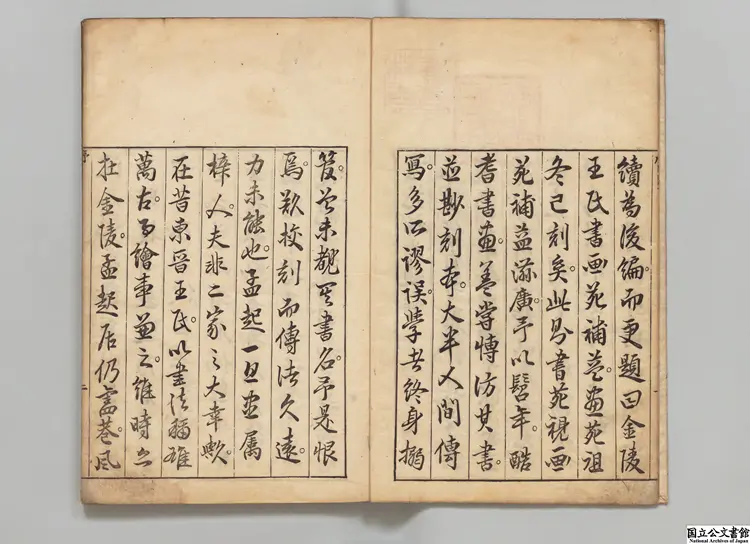 續為後編。而更題曰金陵
王氏書画苑補益。画苑祖
冬已刻矣。此則書苑視画
苑補益添廣。予以髫年。酷
耆書画。蓋嘗博訪其書。
並尠刻本。大半人間傳
寫。多所謬誤。學者終身搦
管。曾未覩其書名。予是恨
焉。欲授刻而傳法久遠。
力未能也。孟起一旦並属
梓人。夫非二家之大幸歟。
在昔東晉王氏。以書法稱雄
萬古。而繪事兼之。維時亦
在金陵。孟起居仍巷。風
序
二
国立公文書館
National Archives of Japan